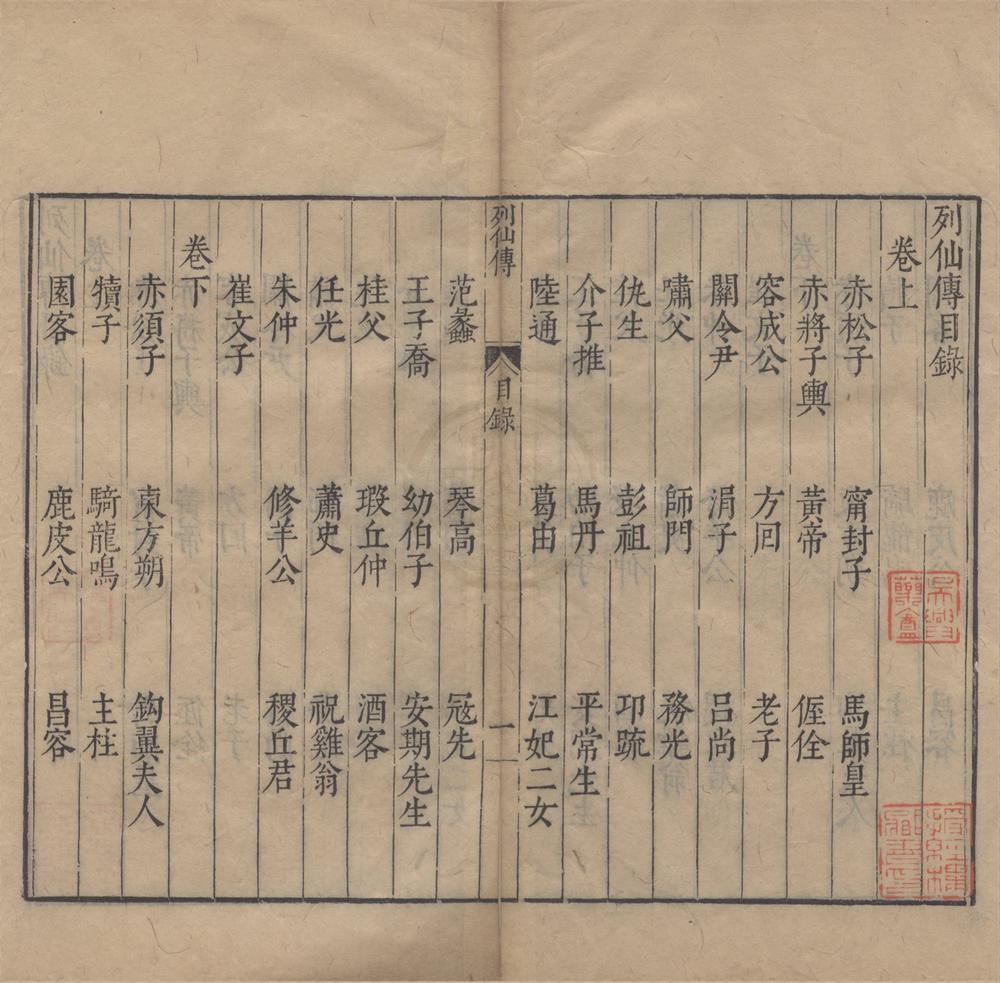 列仙傳目錄
卷上
赤松子 甯封子 馬師皇
赤將子輿 黃帝 偓佺
容成公 方回 老子
關令尹 涓子 呂尚
嘯父 師門 務光
仇生 彭祖 卭疏
介子推 馬丹 平常生
陸通 葛由 江妃二女
列仙傳 目錄 一
范蠡 琴高 冦先
王子喬 幼伯子 安期先生
桂父 瑕丘仲 酒客
任光 蕭史 祝雞翁
朱仲 修羊公 稷丘君
崔文子
卷下
赤須子 東方朔 鈎翼夫人
犢子 騎龍鳴 主柱
園客 鹿皮公 昌容